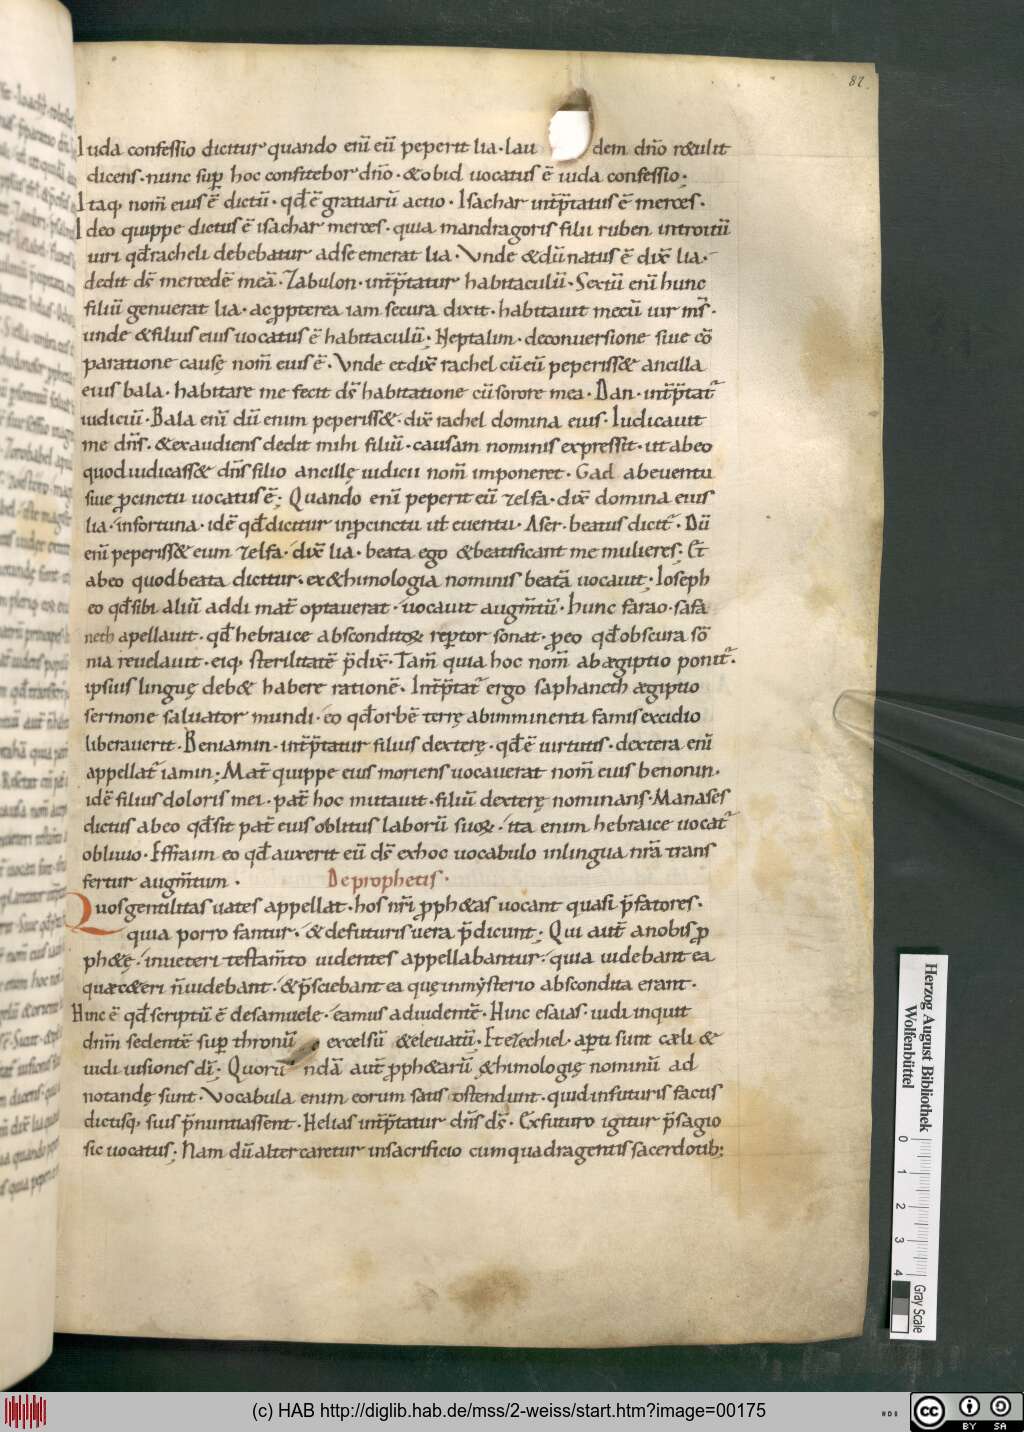 87.
Iuda confessio dicitur quando eni̅ eu̅ peperit lia · lau dem dn̅o r&ulit
dicens · nunc sup̅ hoc confitebor dn̅o · &obid uocatus e̅ iuda confessio;
Itaq, nom̅ eius e̅ dictu̅ · qd̅ e̅ gratiaru̅ actio · Isachar int̅p̅tatus e̅ merces ·
Ideo quippe dictus e̅ isachar merces · quia mandragoris filii ruben introitu̅
uiri qd̅ racheli debebatur adse emerat lia · Vnde &du̅ natus e̅ dix̅ lia ·
dedit ds̅ mercede̅ mea̅ · Zabulon · int̅p̅tatur habitaculu̅ · Sextu̅ eni̅ hunc
filiu̅ genuerat lia · ac ꝓpterea iam secura dixit · habitauit mecu̅ uir ms̅ ·
unde &filius eius uocatus e̅ habitaculu̅; Neptalim · deconuersione siue co̅
paratione causę nom̅ eius e̅ · Vnde etdix̅ rachel cu̅ eu̅ peperiss& ancilla
eius bala · habitare me fecit ds̅ habitatione cu̅ sorore mea · Dan · int̅p̅tat᷑
iudiciu̅ · Bala eni̅ du̅ enim peperiss& · dix̅ rachel domina eius · Iudicauit
me dn̅s · &exaudiens dedit mihi filiu̅ · causam nominis expressit · ut abeo
quod iudicass& dn̅s filio ancillę iudicii nom̅ imponeret · Gad abeuentu
siue ꝓcinctu uocatus e̅; Quando eni̅ peperit eu̅ zelfa · dix̅ domina eius
lia · infortuna · ide̅ qd̅ dicitur inꝓcinctu ut̅ euentu · Aser · beatus dicit᷑ · Du̅
eni̅ peperiss& eum zelfa · dix̅ lia · beata ego &beatificant me mulieres; Et
abeo quod beata dicitur · ex&himologia nominis beata̅ uocauit; Ioseph
eo qd̅ sibi aliu̅ addi mat̅ optauerat · uocauit augm̅tu̅ · hunc farao · safa
neth apellauit · qd̅ hebraice absconditoꝝ rep̅tor sonat · ꝓeo qd̅ obscura so̅
nia reuelauit · eiq, sterilitate̅ p̅dix̅ · Tam̅ quia hoc nom̅ ab ægiptio ponit᷑ ·
ipsius linguę deb& habere ratione̅ · Int̅p̅tat᷑ ergo saphaneth ægiptio
sermone saluator mundi · eo qd̅ orbe̅ terrę abimminenti famis excidio
liberauerit · Beniamin · int̅p̅tatur filius dexterę · qd̅ e̅ uirtutis · dextera eni̅
appellat᷑ iamin; Mat̅ quippe eius moriens uocauerat nom̅ eius benonin ·
ide̅ filius doloris mei · pat̅ hoc mutauit · filiu̅ dexterę nominans · Manases
dictus abeo qd̅ sit pat̅ eius oblitus laboru̅ suoꝝ · ita enim hebraice uocat᷑
obliuio · Effraim eo qd̅ auxerit eu̅ ds̅ exhoc uocabulo inlingua nr̅a trans
fertur augm̅tum ·
De prophetis ·
Quos gentilitas uates appellat · hos nr̅i ꝓph&as uocant quasi p̅fatores ·
quia porro fantur · &defuturis uera p̅dicunt; Qui aut̅ anobis ꝓ
ph&ę · inueteri testam̅to uidentes appellabantur · quia uidebant ea
quæ c&eri n̅ uidebant · &p̅sciebant ea quę inmẏsterio abscondita erant ·
Hinc e̅ qd̅ scriptu̅ e̅ desamuele · eamus aduidente̅ · Hinc esaias · uidi inquit
dnm̅ sedente̅ sup̅ thronu̅ excelsu̅ &eleuatu̅ · Et ezechiel · ap̅ti sunt cæli &
uidi uisiones di̅; Quoru̅ nda̅ aut̅ ꝓph&aru̅ &himologię nominu̅ ad
notandę sunt · Vocabula enim eorum satis ostendunt · quid infuturis factis
dictisq, suis p̅nuntiassent · Helias int̅p̅tatur dn̅s ds̅ · Exfuturo igitur p̅sagio
sic uocatus; Nam du̅ altercaretur insacrificio cum quadragentis sacerdotib;
Herzog August Bibliothek
Wolfenbüttel
0 1 2 3 4
Gray Scale
(c) HAB http://diglib.hab.de/mss/2-weiss/start.htm?image=00175
cc BY SA